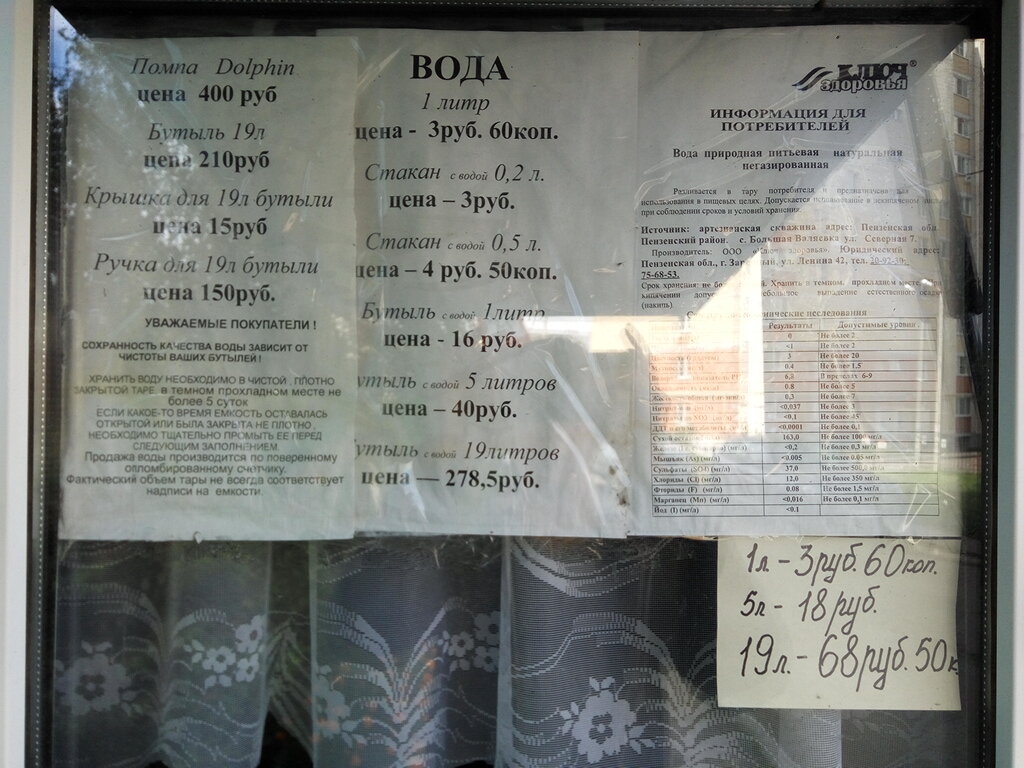 Помпа Dolphin
цена 400 руб
Бутыль 19л
цена 210руб
Крышка для 19л бутыли
цена 15руб
Ручка для 19л бутыли
цена 150руб.
УВАЖАЕМЫЕ ПОКУПАТЕЛИ !
СОХРАННОСТЬ КАЧЕСТВА ВОДЫ ЗАВИСИТ ОТ
ЧИСТОТЫ ВАШИХ БУТЫЛЕЙ !
ХРАНИТЬ ВОДУ НЕОБХОДИМО В ЧИСТОЙ , ПЛОТНО
ЗАКРЫТОЙ ТАРЕ, в темном прохладном месте не
более 5 суток
ЕСЛИ КАКОЕ-ТО ВРЕМЯ ЕМКОСТЬ ОСТАВАЛАСЬ
ОТКРЫТОЙ ИЛИ БЫЛА ЗАКРЫТА НЕ ПЛОТНО ,
НЕОБХОДИМО ТЩАТЕЛЬНО ПРОМЫТЬ ЕЕ ПЕРЕД
СЛЕДУЮЩИМ ЗАПОЛНЕНИЕМ.
Продажа воды производится по поверенному
опломбированному счетчику.
Фактический объем тары не всегда соответствует
надписи на емкости.
ВОДА
1 литр
цена - 3руб. 60коп.
Стакан с водой 0,2 л.
цена – 3руб.
Стакан с водой 0,5 л.
цена – 4 руб. 50коп.
Бутыль с водой 1литр
цена - 16 руб.
утыль с водой 5 литров
цена – 40руб.
утыль с водой 19литров
цена — 278,5руб.
КЛЮЧ®
здоровья
ИНФОРМАЦИЯ ДЛЯ
ПОТРЕБИТЕЛЕЙ
Вода природная питьевая натуральная
негазированная
Разливается в тару потребителя и предназначена для
использования в пищевых целях. Допускается использование в
при соблюдении сроков и условий хранения.
Источник: артезианская скважина адрес: Пензенская обл.
Пензенский район. с. Большая Валяевка ул. Северная 7.
Производитель: ООО здоровья». Юридический адрес:
Пензенская обл., г. ул. Ленина 42, тел. 20-92-30;
75-68-53.
Срок хранения: не Хранить в темном, прохладном месте.
кипячении выпадение естественного
(накипь)
исследования
Результаты Допустимые уровни
0 Не более 2
<1 Не более 2
3 Не более 20
0.4 Не более 1,5
6,8 В пределах 6-9
0.8 Не более 5
0.3 Не более 7
<0,037 Не более 3
<0.1 Не более 45
<0,0001 Не более 0,1
163,0 Не более 1000 мг/л
<0.2 Не более 0,3 мг/л
Мышьяк (As) (мг/л) <0.005 Не более 0.05 мг/л
Сульфаты (SO4) (мг/л) 37,0 Не более 500,0 мг/л
Хлориды (Cl) (мг/л) 12,0 Не более 350 мг/л
Фториды (F) (мг/л) 0.08 Не более 1,5 мг/л
Марганец (Mn) (мг/л) <0,016 Не более 0,1 мг/л
Йод (I) (мг/л) <0.1
1л - 3руб. 60коп.
5л - 18 руб.
19л. - 68руб. 50к